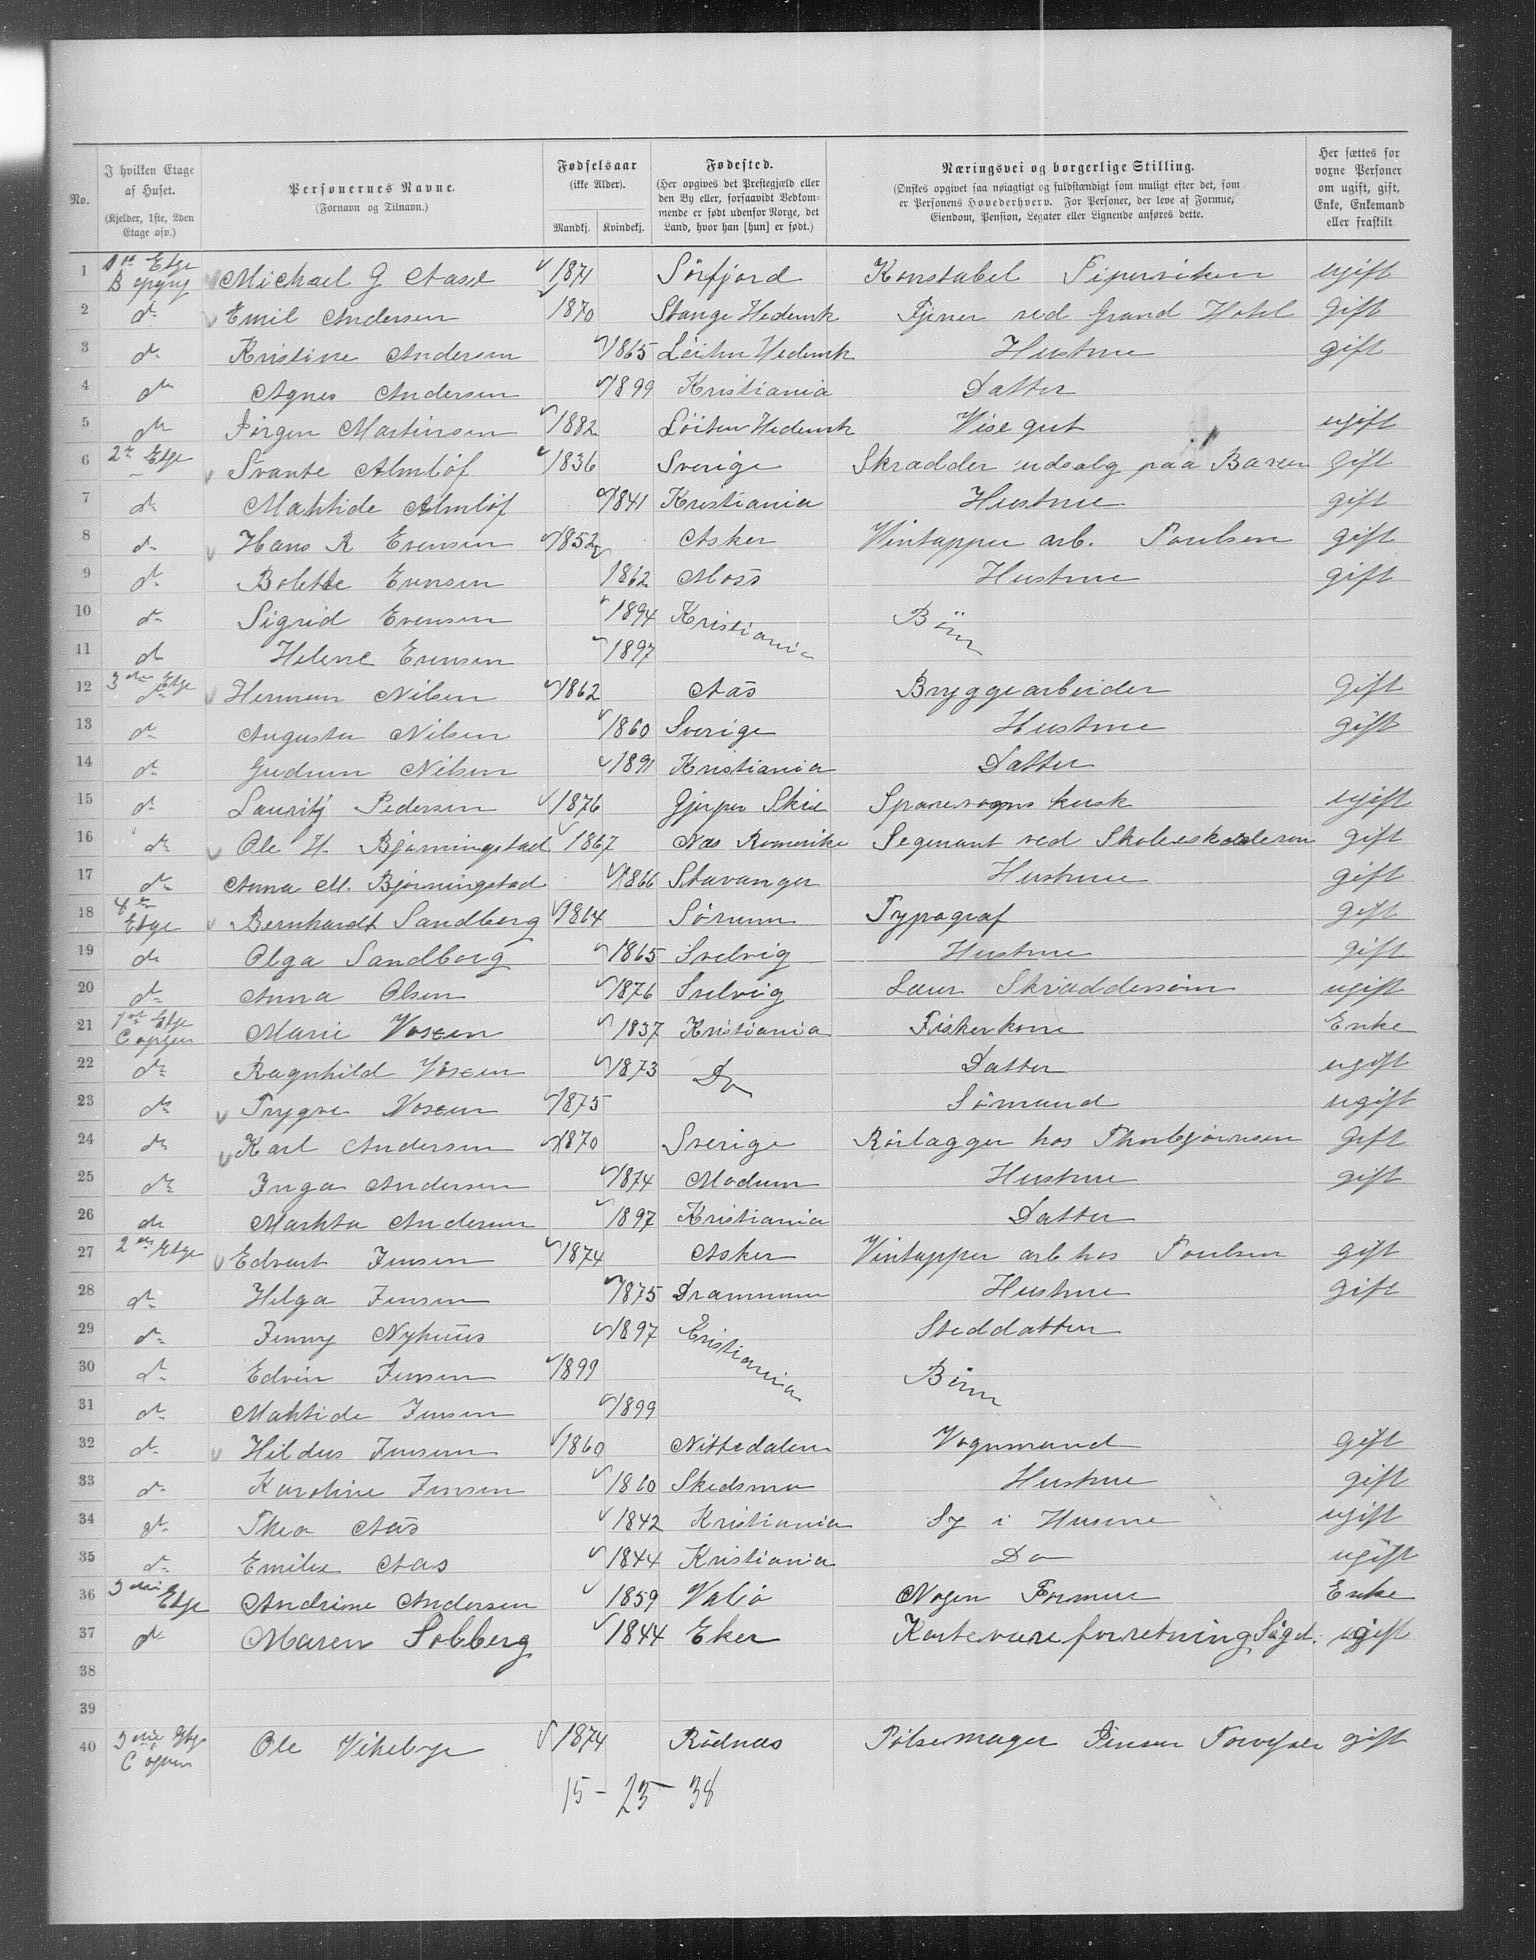 No.
I hvilken Etage af Huset. (Kjelder, 1ste, 2den Etage osv.)
Personernes Navne. (Fornavn og Tilnavn.)
Fødselsaar (ikke Alder). Mandkj. Kvindekj.
Fødested. (Her opgives det Prestegjæld eller den By eller, forsaavidt Vedkommende er født udenfor Norge, det Land, hvor han [hun] er født.)
Næringsvei og borgerlige Stilling. (Ønskes opgivet saa nøiagtigt og fuldstændigt som muligt efter det, som er Personens Hovederhverv. For Personer, der leve af Formue, Eiendom, Pension, Legater eller Lignende anføres dette.
Her sættes for vorne Personer om ugift, gift, Enke, Enkemand eller fraskilt.
1 Etge B Michael G Aase 1871 Sörfjord Konstabel Piperviken ugift
2 do Emil Andersen 1870 Stange Hedemk Tjener ved Grand Hotel gift
3 do Kristine Andersen 1865 Löiten Hedemk Hustrue gift
4 do Agnes Andersen 1899 Kristiania Datter
5 do Jörgen Martinsen 1882 Löiten Hedemk Visegut ugift
6 2n Etge Svante Almlöf 1836 Sverige Skrædder udsalg paa Basar gift
7 do Mathilde Almlöf 1841 Kristiania Hustrue gift
8 do Hans R Evensen 1852 Asker Vintapper arb. Poulsen gift
9 do Bolette Evensen 1862 Moss Hustrue gift
10 do Sigrid Evensen 1894 Kristiania Börn
11 do Helene Evensen 1897
12 3die Etge do Herman Nilsen 1862 Aas Bryggearbeider gift
13 do Augusta Nilsen 1860 Sverige Hustrue gift
14 do Gudrun Nilsen 1891 Kristiania Datter
15 do Lauritz Pedersen 1876 Gjerpen Skien Sporevogns kusk ugift
16 do Ole H. Bjørningstad 1867 Næs Romerike Segenant ved Skoleeskaderen gift
17 do Anna M. Bjørningstad 1866 Stavanger Hustrue gift
18 4de Etge Bernhardt Sandberg 1864 Sörum Typograf gift
19 do Olga Sandberg 1865 Svelvig Hustrue gift
20 do Anna Olsen 1876 Svelvig Lær Skræddersöm ugift
21 1st Etge C opgen Marie Vosen 1837 Kristiania Fiskerkone Enke
22 do Ragnhild Vosen 1873 Do Datter ugift
23 do Trygve Vosen 1875 Sömand ugift
24 do Karl Andersen 1870 Sverige Rörlægger hos Thorbjörnsen gift
25 do Inga Andersen 1874 Modum Hustrue gift
26 do Martha Andersen 1897 Kristiania Datter
27 2den Etge Edvart Jensen 1874 Asker Vintapper arb hos Poulsen gift
28 do Helga Jensen 1875 Drammen Hustrue gift
29 do Jenny Nyhuus 1897 Kristiania Steddatter
30 do Edvin Jensen 1899 Börn
31 do Mathilde Jensen 1899
32 do Hildus Jensen 1860 Nittedalen Vognmand gift
33 do Karoline Jensen 1860 Skedsmo Hustrue gift
34 do Thea Aas 1842 Kristiania Sy i Husene ugift
35 do Emilie Aas 1844 Kristiania Do ugift
36 3die Etge Andrine Andersen 1859 Valö Nogen Formue Enke
37 do Maren Solberg 1844 Eker Kortevareforretning Sögd. ugift
38
39
40 3die Etge C opgen Ole Vikebye 1874 Rödnæs Pölsemager Jensen Torvgaden gift
15 - 23 - 38